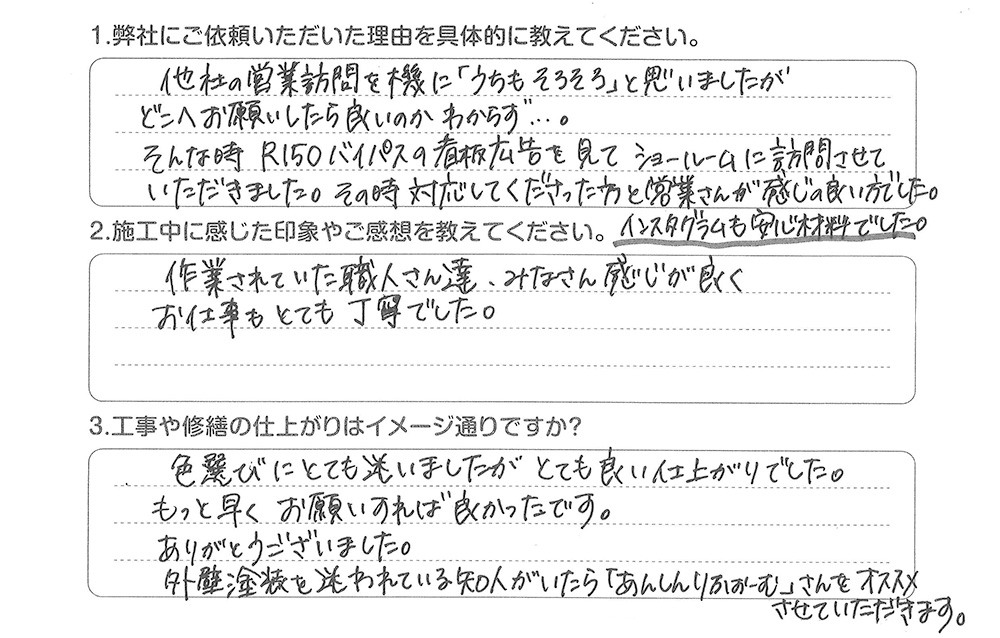 1.弊社にご依頼いただいた理由を具体的に教えてください。
他社の営業訪問を機に「うちもそろそろ」と思いましたが
どこへお願いしたら良いのかわからず…。
そんな時 R150バイパスの看板広告を見て ショールームに訪問させて
いただきました。その時対応してくださった方と営業さんが感じの良い方でした。
インスタグラムも安心材料でした。
2.施工中に感じた印象やご感想を教えてください。
作業されていた職人さん達、みなさん感じが良く
お仕事もとても丁寧でした。
3.工事や修繕の仕上がりはイメージ通りですか?
色選びにとても迷いましたが とても良い仕上がりでした。
もっと早く お願いすれば良かったです。
ありがとうございました。
外壁塗装を迷われている知人がいたら「あんしんりふぉーむ」さんをオススメ
させていただきます。